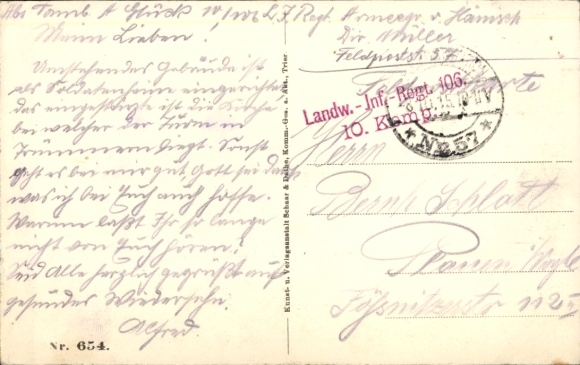 Abs. Tamb. A Glück 10/106 L. J. Regt. Armeegr. v.
Div. Müller
Feldpostst. 57
Meine Lieben!
Umstehendes Gebäude ist
als Soldatenheim eingerichtet,
das eingestürzte ist die Kirche
bei welcher der Turm in
Trümmern liegt. Sonst
geht es bei mir gut Gott sei Dank
was ich bei Euch auch hoffe.
Warum laßt Ihr so lange
nichts von Euch hören!
Seid Alle herzlich gegrüßt auf
gesundes Wiedersehn.
Alfred.
Nr. 654.
Kunst- u. Verlagsanstalt Schaar & Dathe, Komm.-Ges. a. Akt., Trier.
Landw.-Inf.-Regt. 106.
10. Komp.
* No 57 *
Feldpostkarte
Herrn
Bernh.
Plauen